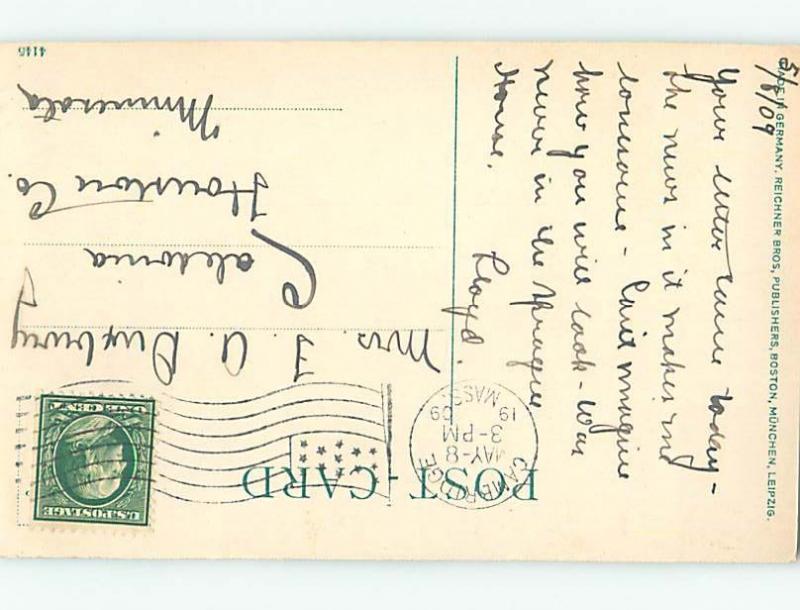 POST-CARD
MADE IN GERMANY. REICHNER BROS, PUBLISHERS, BOSTON, MÜNCHEN, LEIPZIG.
4145
CAMBRIDGE
MAY-8
3-PM
19 09
MASS.
U.S. POSTAGE
ONE CENT
5/8/09
Your letter came today-
the news in it makes me
lonesome - Can't imagine
how you will look - Was
never in the Sprague
House.
Lloyd.
Mrs. F. A. Duxbury
Caledonia
Houston Co.
Minnesota